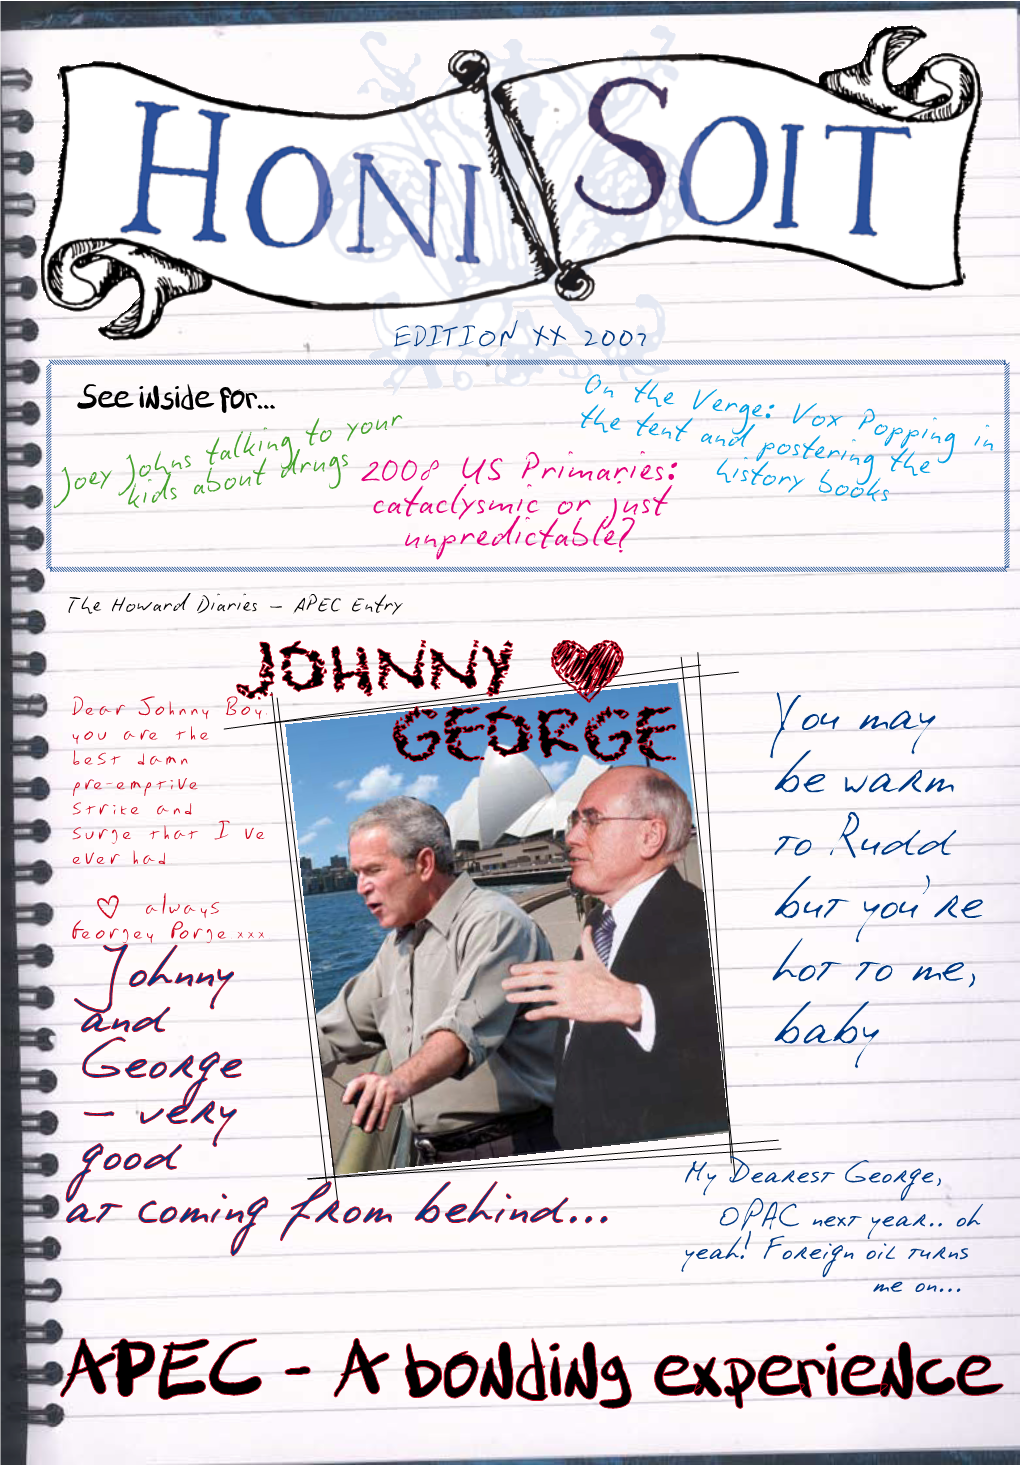 HONI SOIT
EDITION XX 2007
See inside for...
Joey Johns talking to your
kids about drugs
2008 US Primaries:
cataclysmic or just
unpredictable?
On the Verge: Vox Popping in
the tent and postering the
history books
The Howard Diaries – APEC Entry
JOHNNY ♥
GEORGE
Dear Johnny Boy,
you are the
best damn
pre-emptive
strike and
surge that I've
ever had
♡ always
Georgey Porge xxx
Johnny
and
George
– very
good
at coming from behind...
You may
be warm
to Rudd
but you're
hot to me,
baby
My Dearest George,
OPAC next year.. oh
yeah! Foreign oil turns
me on...
APEC - A bonding experience